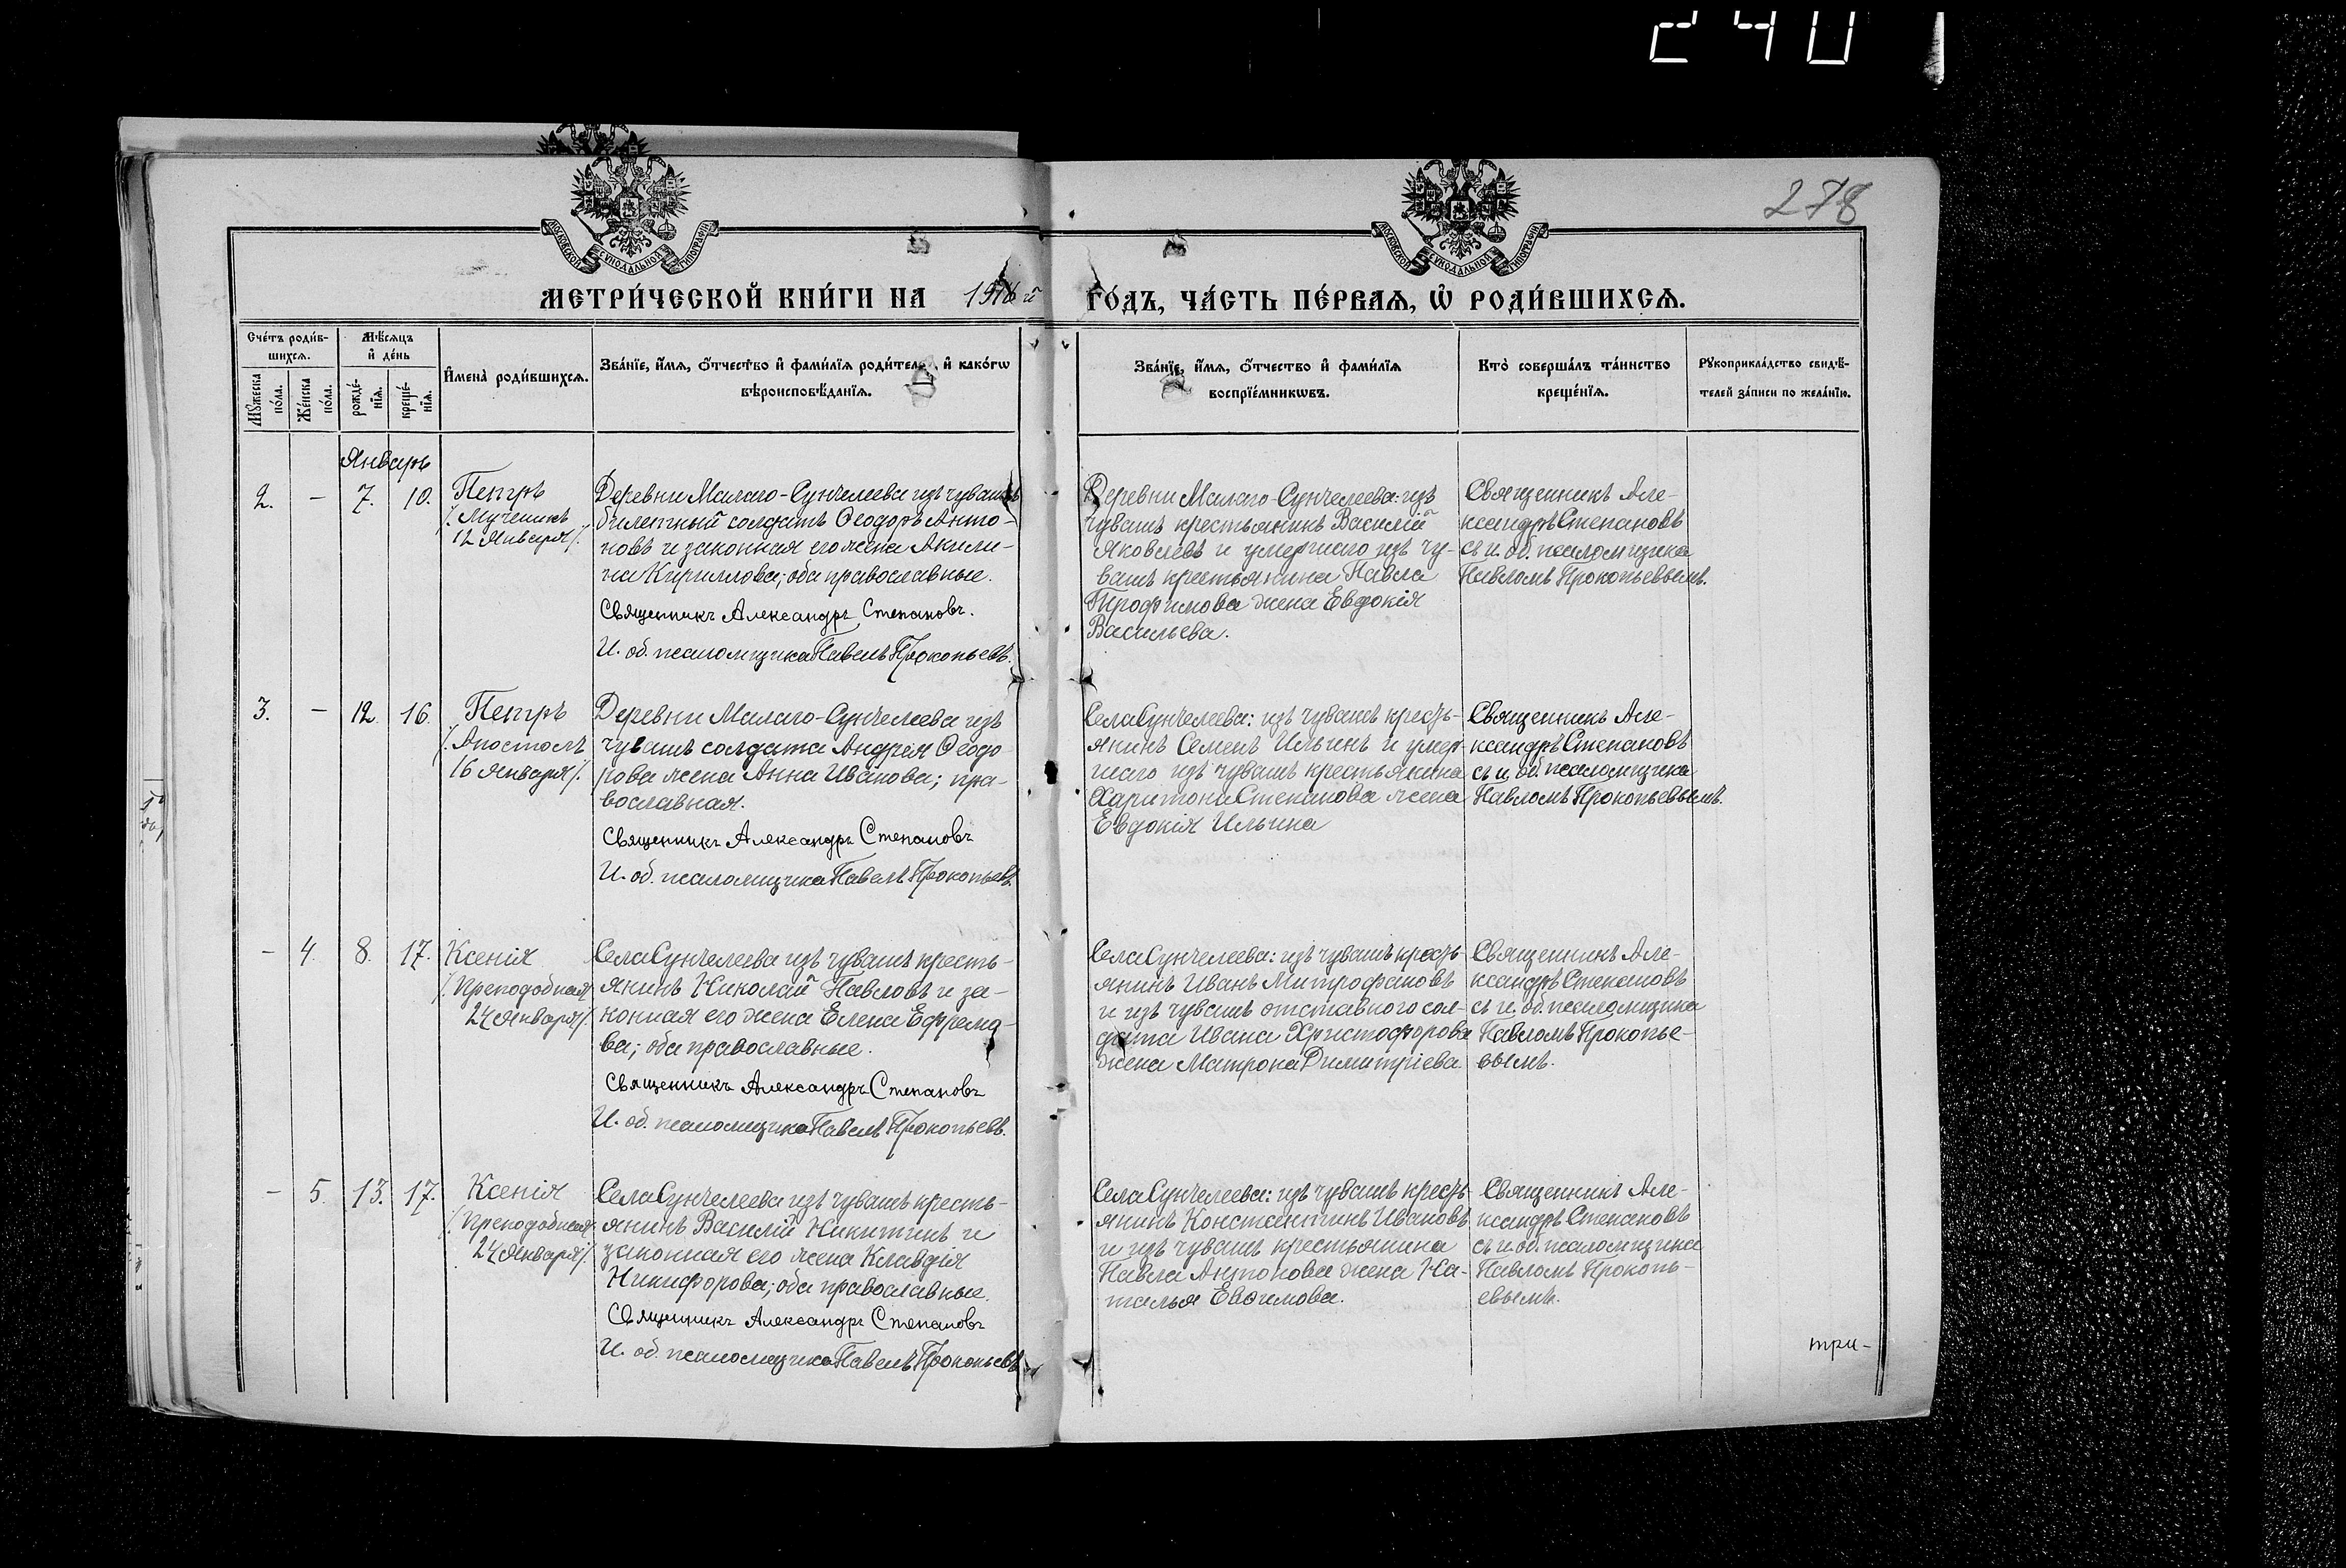 240
278
МОСКОВСКОЙ СУНОДАЛЬНОЙ ТИПОГРАФІИ
МОСКОВСКОЙ СУНОДАЛЬНОЙ ТИПОГРАФІИ
МЕТРИ́ЧЕСКОЙ КНИ́ГИ НА й ГО́ДЪ, ЧА́СТЬ ПЕ́РВАѦ, Ѡ҆ РОДИ́ВШИХСѦ.
Сче́тъ роди́в-
шихсѧ.
Мꙋ́жеска по́ла.
Же́нска по́ла.
Мѣ́сѧцъ
и҆ де́нь
рожде́-
нїѧ.
креще́-
нїѧ.
И҆мена̀ роди́вшихсѧ.
Зва́нїе, и҆́мѧ, ѻ҆́тчество и҆ фами́лїѧ родителе и҆ како́гѡ
вѣроисповѣ́данїѧ.
Зва́нїе, и҆́мѧ, ѻ҆́тчество и҆ фами́лїѧ
воспрїе́мникѡвъ.
Кто̀ соверша́лъ та́инство
креще́нїѧ.
Рꙋкоприкла́дство свидѣ́-
телей за́писи по жела́нїю.
Январь
2. — 7. 10.
Петръ
/. Мученикъ
12 Января /.
Деревни Малаго-Сунчелеева изъ чувашъ
билетный солдатъ Ѳеодоръ Анто-
новъ и законная его жена Акили-
на Кириллова; оба православные.
Священникъ Александръ Степановъ.
И. об. псаломщика Павелъ Прокопьевъ.
Деревни Малаго-Сунчелеева: изъ
чувашъ крестьянинъ Василій
Яковлевъ и умершаго изъ чу-
вашъ крестьянина Павла
Трофимова жена Евдокія
Васильева.
Священникъ Але-
ксандръ Степановъ
съ и. об. псаломщика
Павломъ Прокопьевымъ.
3. — 12. 16.
Петръ
/. Апостолъ
16 Января /.
Деревни Малаго-Сунчелеева изъ
чувашъ солдата Андрея Ѳеодо-
рова жена Анна Иванова; пра-
вославная.
Священникъ Александръ Степановъ
И. об. псаломщика Павелъ Прокопьевъ.
Села Сунчелеева: изъ чувашъ кресть-
янинъ Семенъ Ильинъ и умер-
шаго изъ чувашъ крестьянина
Харитона Степанова жена
Евдокія Ильина
Священникъ Але-
ксандръ Степановъ
съ и. об. псаломщика
Павломъ Прокопьевымъ.
— 4. 8. 17.
Ксенія
/. Преподобная
24 Января /.
Села Сунчелеева изъ чувашъ кресть-
янинъ Николай Павловъ и за-
конная его жена Елена Ефремо-
ва; оба православные.
Священникъ Александръ Степановъ
И. об. псаломщика Павелъ Прокопьевъ.
Села Сунчелеева: изъ чувашъ кресть-
янинъ Иванъ Митрофановъ
и изъ чувашъ отставного сол-
дата Ивана Христофорова
жена Матрона Димитріева.
Священникъ Але-
ксандръ Степановъ
съ и. об. псаломщика
Павломъ Прокопье-
вымъ.
— 5. 13. 17.
Ксенія
/. Преподобная
24 Января /.
Села Сунчелеева изъ чувашъ кресть-
янинъ Василій Никитинъ и
законная его жена Клавдія
Никифорова; оба православные.
Священникъ Александръ Степановъ
И. об. псаломщика Павелъ Прокопьевъ
Села Сунчелеева: изъ чувашъ кресть-
янинъ Константинъ Ивановъ
и изъ чувашъ крестьянина
Павла Антонова жена На-
талья Евѳимова.
Священникъ Але-
ксандръ Степановъ
съ и. об. псаломщика
Павломъ Прокопь-
евымъ.
три-